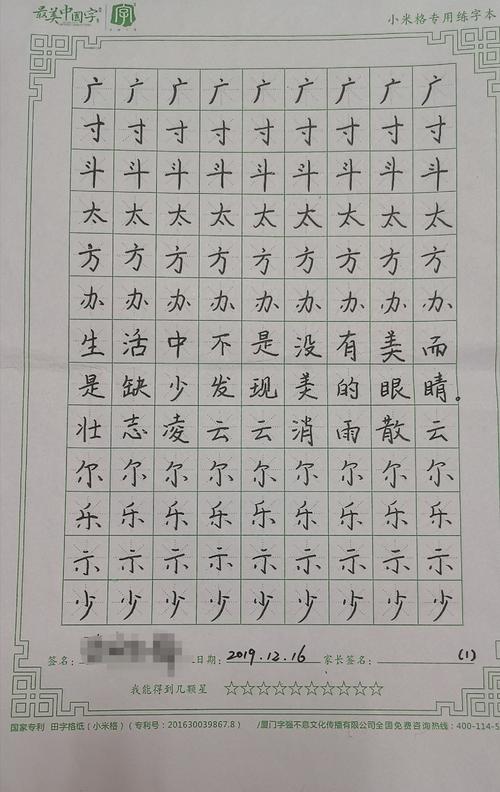 最美中国字 字 小米格专用练字本
广广广广广广广广广
寸寸寸寸寸寸寸寸寸
斗斗斗斗斗斗斗斗斗
太太太太太太太太太
方方方方方方方方方
办办办办办办办办办
生活中不是没有美而
是缺少发现美的眼睛。
壮志凌云云消雨散云
尔尔尔尔尔尔尔尔尔
乐乐乐乐乐乐乐乐乐
示示示示示示示示示
少少少少少少少少少
签名: 日期: 2019.12.16 家长签名: (1)
我能得到几颗星 ☆☆☆☆☆☆☆☆☆☆
国家专利 田字格纸(小米格)(专利号:201630039867.8) /厦门字强不息文化传播有限公司全国免费咨询热线:400-114-5